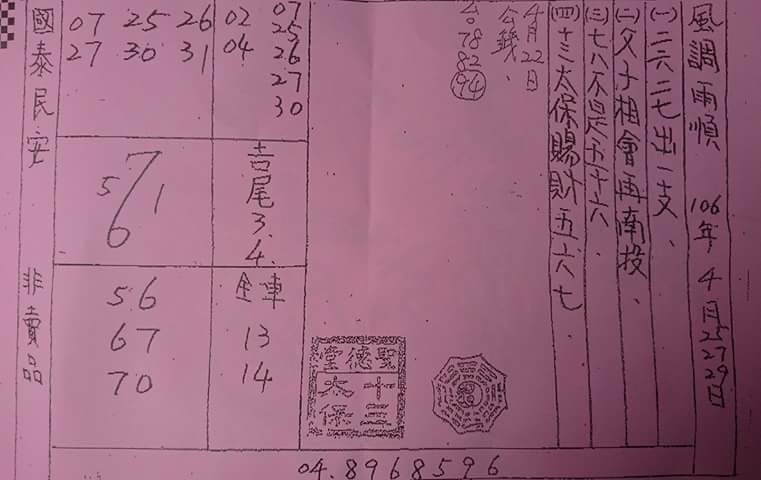 風調雨順 106年 4月25 27 29日
(一)二六二七出一支、
(二)父子相會再南投、
(三)七八不是五十六、
(四)十三太保賜財五六七、
4月22日
公錢、
台 78 82 94
聖德堂
十三太保
07 25 26 27 30
02 04
吉尾 3. 4.
全車 13 14
07 25 26
27 30 31
7
5 1
6
56
67
70
國泰民安 非賣品
04.8968596